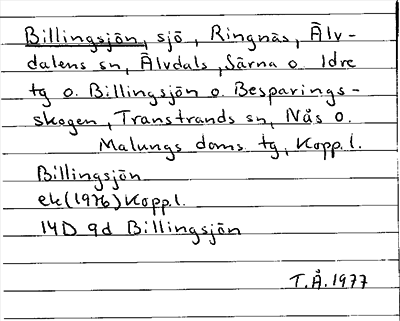 Billingsjön, sjö, Ringnäs, Älv-
dalens sn, Älvdals, Särna o. Idre
tg o. Billingsjön o. Besparings-
skogen, Transtrands sn, Nås o.
Malungs doms. tg, Kopp. l.
Billingsjön
ek (1976) Kopp. l.
14D 9d Billingsjön
T.Å. 1977